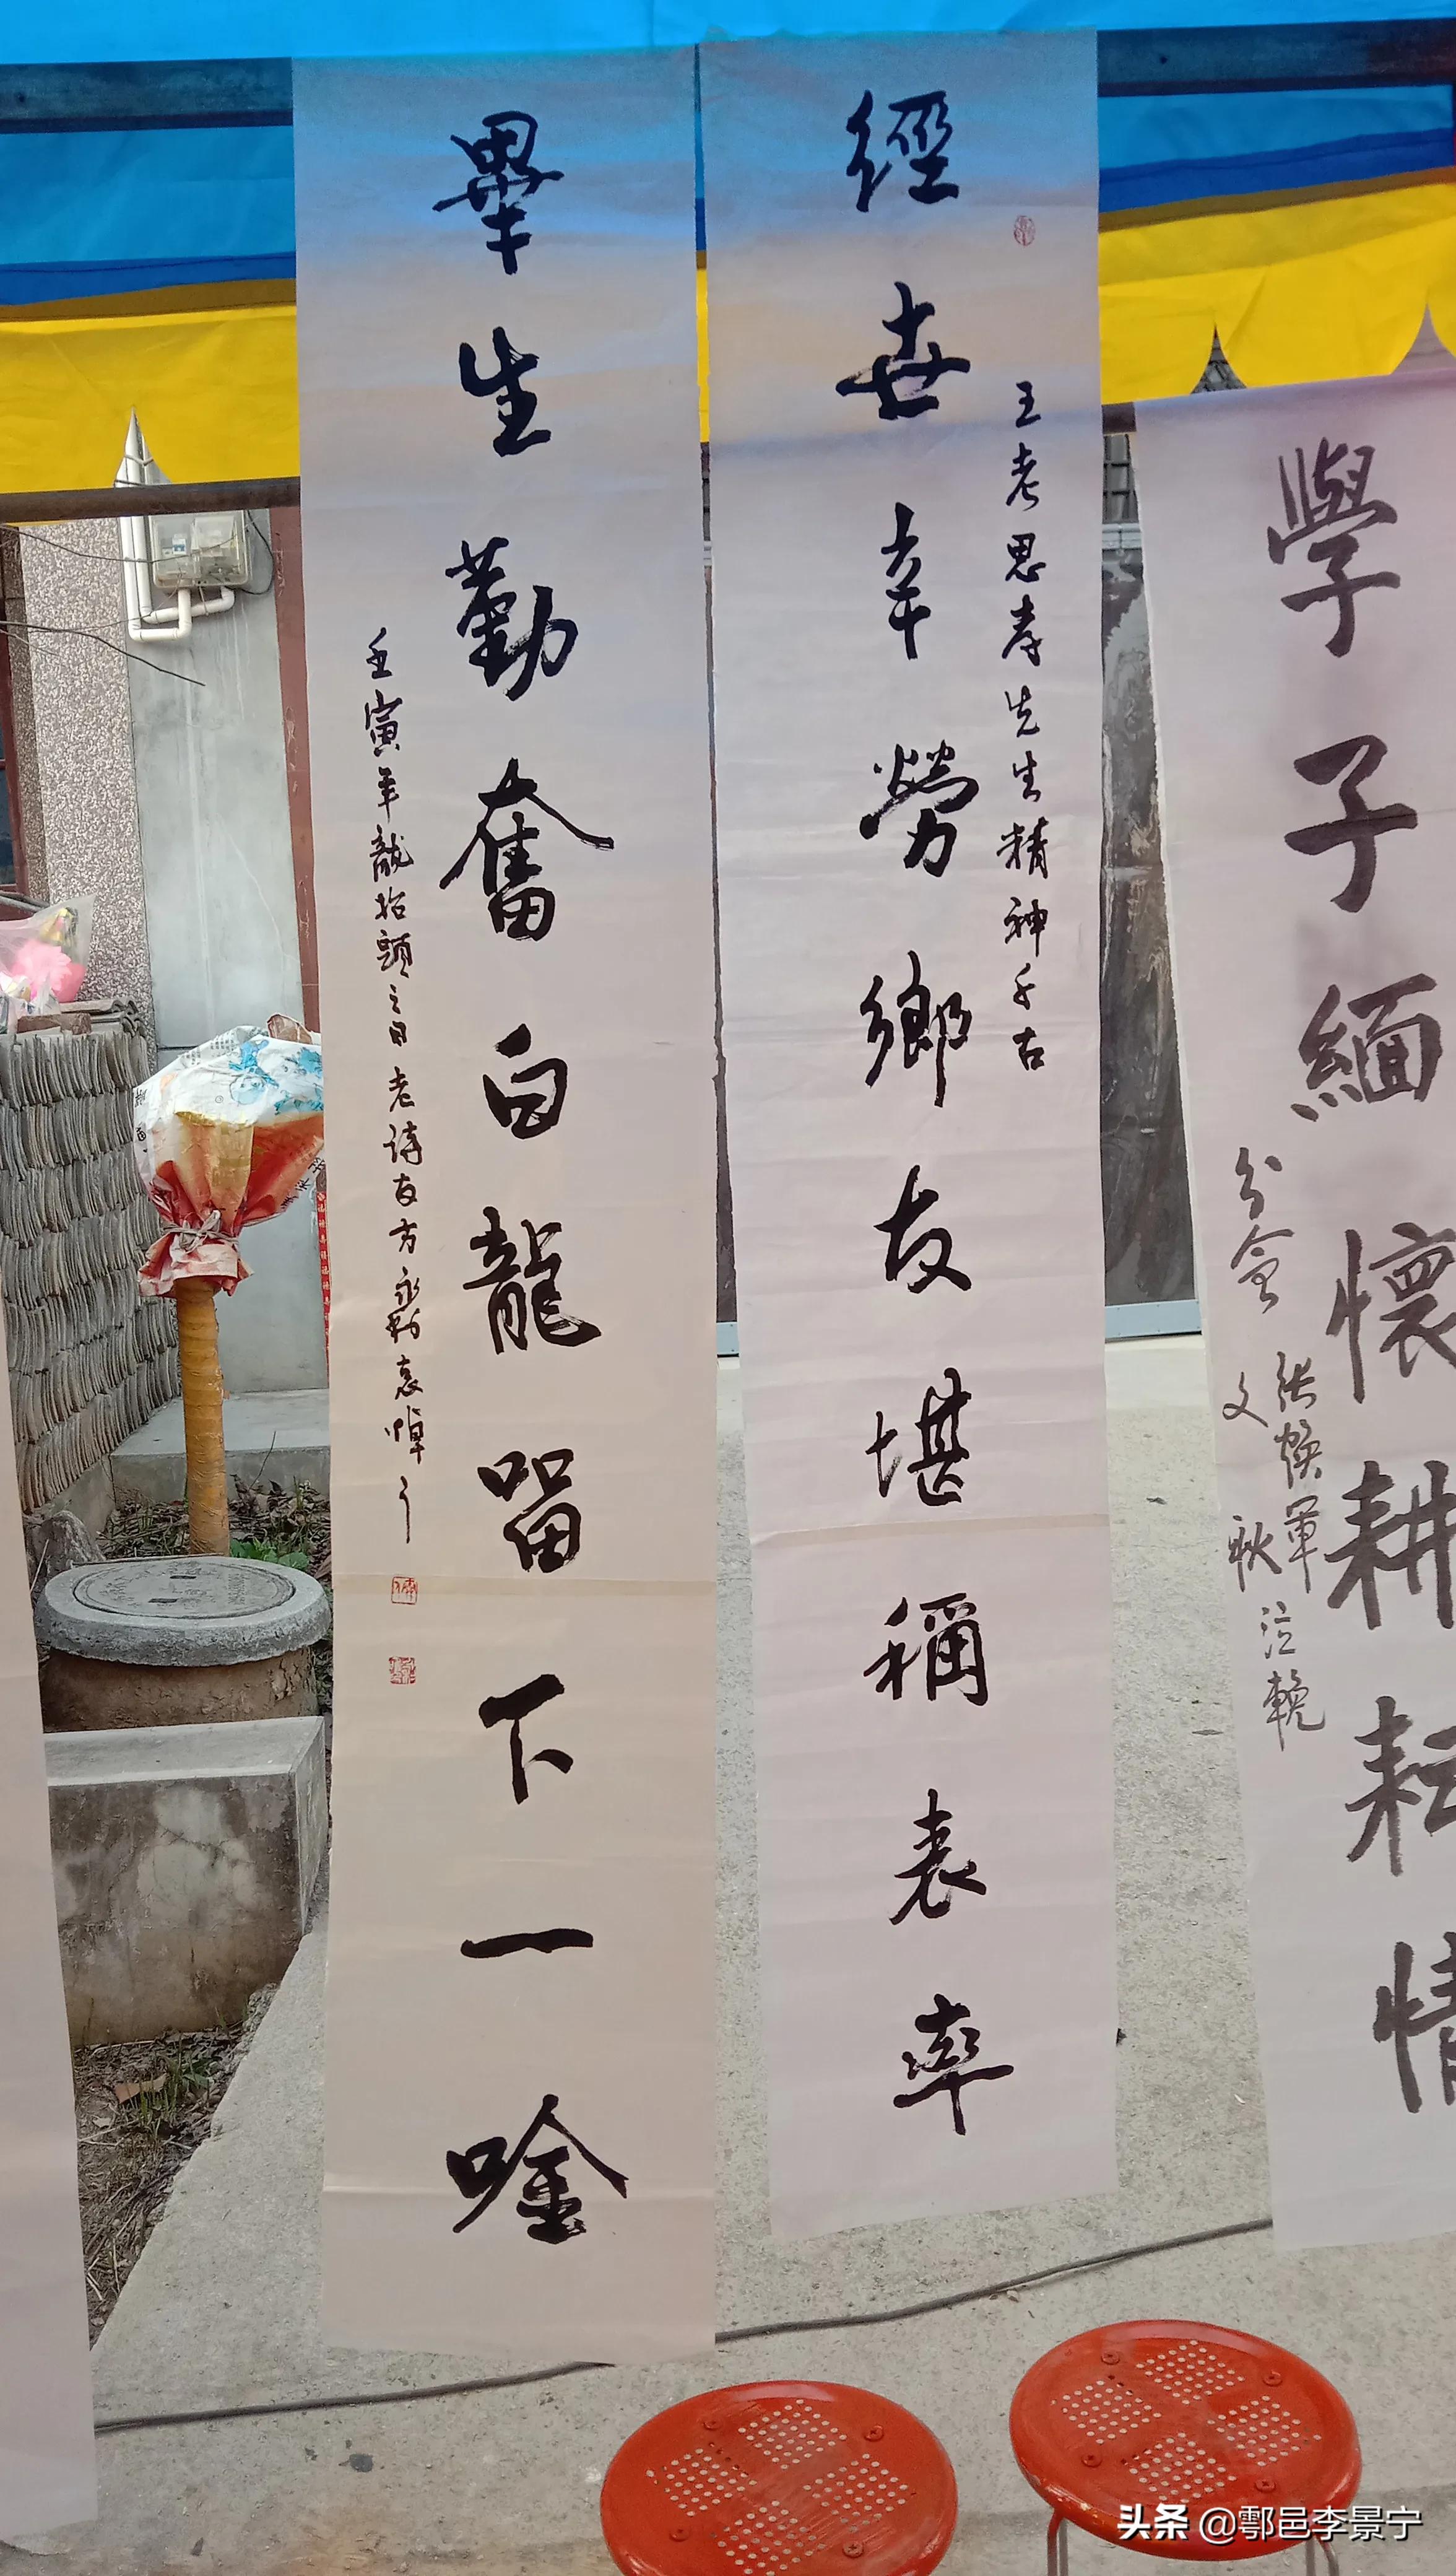 學子緬懷耕耘情
分會
文秋 泣輓
經世辛勞鄉友堪稱表率
王老思孝先生精神千古
畢生勤奮白龍留下一唫
壬寅年龍抬頭之日老詩友方永勤哀悼
头条 @鄠邑李景宁